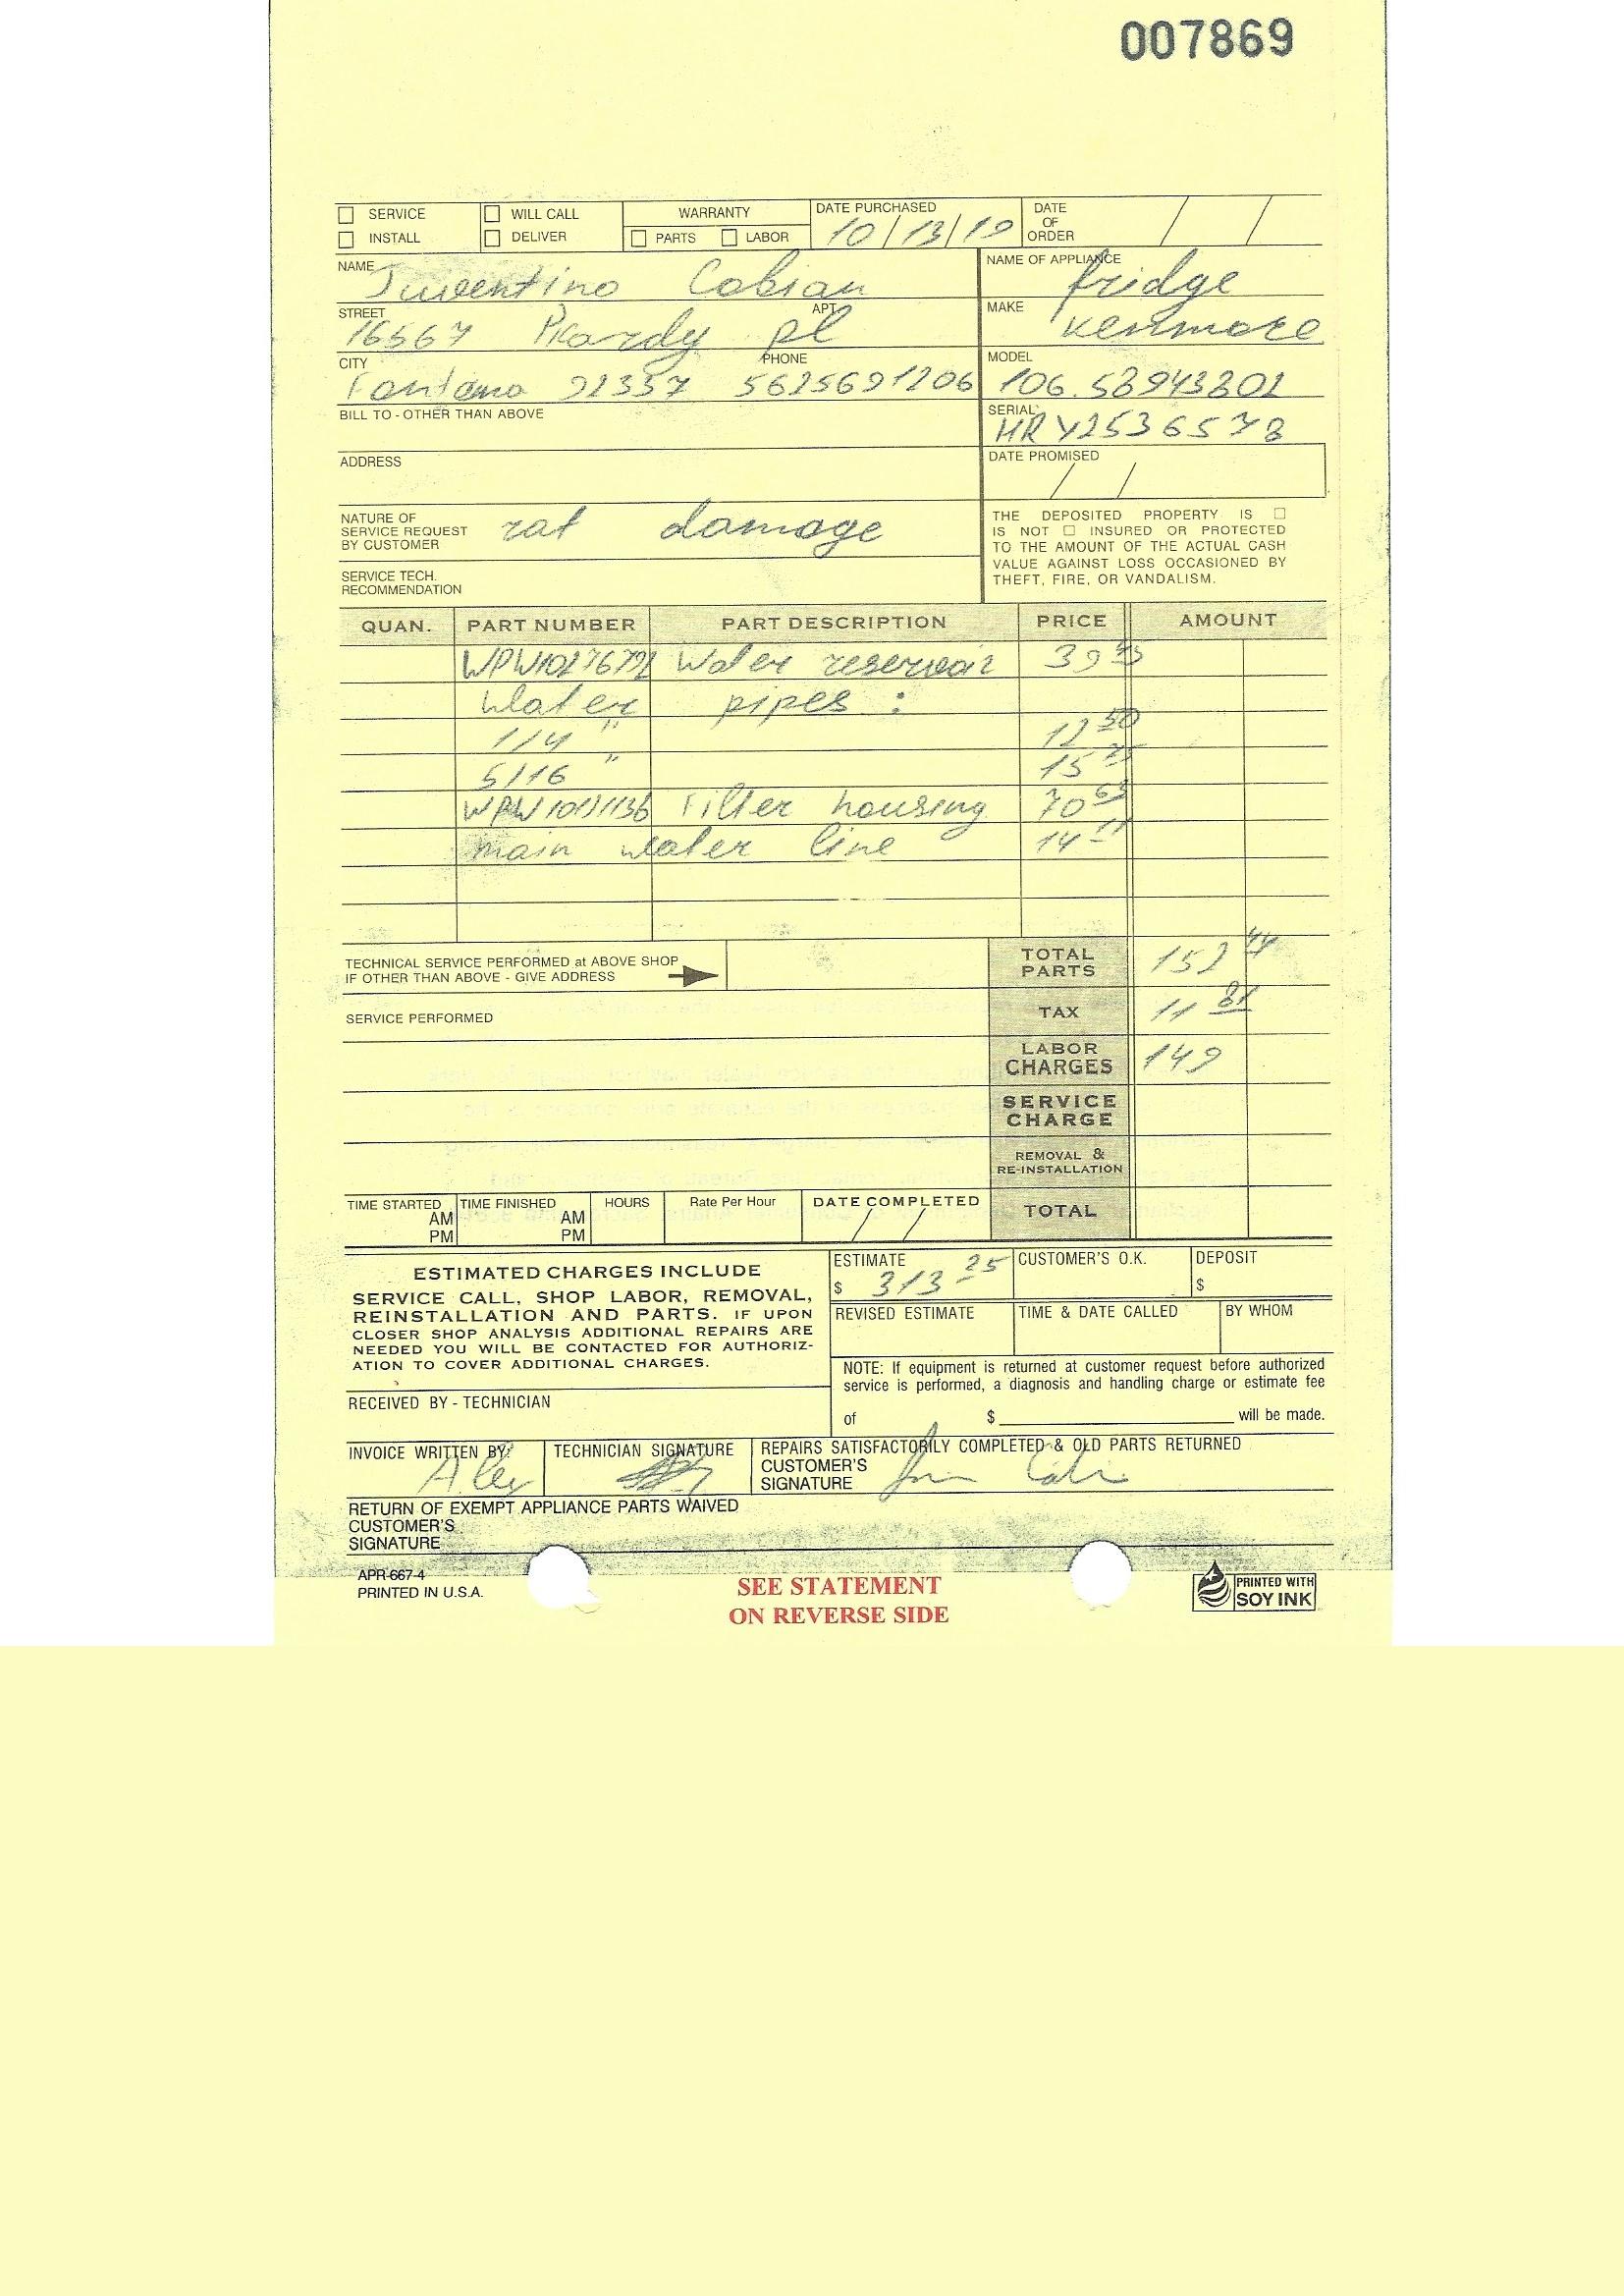 007869
SERVICE WILL CALL WARRANTY DATE PURCHASED DATE OF ORDER
INSTALL DELIVER PARTS LABOR 10/13/19 / /
NAME Juventino Cobian NAME OF APPLIANCE fridge
STREET 16567 Picardy pl APT. MAKE kenmore
CITY PHONE MODEL
Fontana 92337 5625691206 106.58943801
BILL TO - OTHER THAN ABOVE SERIAL HRY2536578
ADDRESS DATE PROMISED / /
NATURE OF SERVICE REQUEST BY CUSTOMER rat damage
THE DEPOSITED PROPERTY IS
IS NOT INSURED OR PROTECTED
TO THE AMOUNT OF THE ACTUAL CASH
VALUE AGAINST LOSS OCCASIONED BY
THEFT, FIRE, OR VANDALISM.
SERVICE TECH.
RECOMMENDATION
QUAN. PART NUMBER PART DESCRIPTION PRICE AMOUNT
WPW10276792 Water reservoir 39 45
Water pipes :
1/4 " 12 50
5/16 " 15 75
Filter housing 70 63
main water line 14 11
TECHNICAL SERVICE PERFORMED at ABOVE SHOP
IF OTHER THAN ABOVE - GIVE ADDRESS
TOTAL PARTS 152 44
SERVICE PERFORMED TAX 11 81
LABOR CHARGES 149
SERVICE CHARGE
REMOVAL & RE-INSTALLATION
TIME STARTED AM PM TIME FINISHED AM PM HOURS Rate Per Hour DATE COMPLETED / / TOTAL
ESTIMATED CHARGES INCLUDE
SERVICE CALL, SHOP LABOR, REMOVAL,
REINSTALLATION AND PARTS. IF UPON
CLOSER SHOP ANALYSIS ADDITIONAL REPAIRS ARE
NEEDED YOU WILL BE CONTACTED FOR AUTHORIZ-
ATION TO COVER ADDITIONAL CHARGES.
ESTIMATE $ 313 25 CUSTOMER'S O.K. DEPOSIT $
REVISED ESTIMATE TIME & DATE CALLED BY WHOM
NOTE: If equipment is returned at customer request before authorized
service is performed, a diagnosis and handling charge or estimate fee
of $ will be made.
RECEIVED BY - TECHNICIAN
INVOICE WRITTEN BY: Alex TECHNICIAN SIGNATURE REPAIRS SATISFACTORILY COMPLETED & OLD PARTS RETURNED
CUSTOMER'S
SIGNATURE
RETURN OF EXEMPT APPLIANCE PARTS WAIVED
CUSTOMER'S
SIGNATURE
APR-667-4
PRINTED IN U.S.A.
SEE STATEMENT
ON REVERSE SIDE
PRINTED WITH
SOY INK